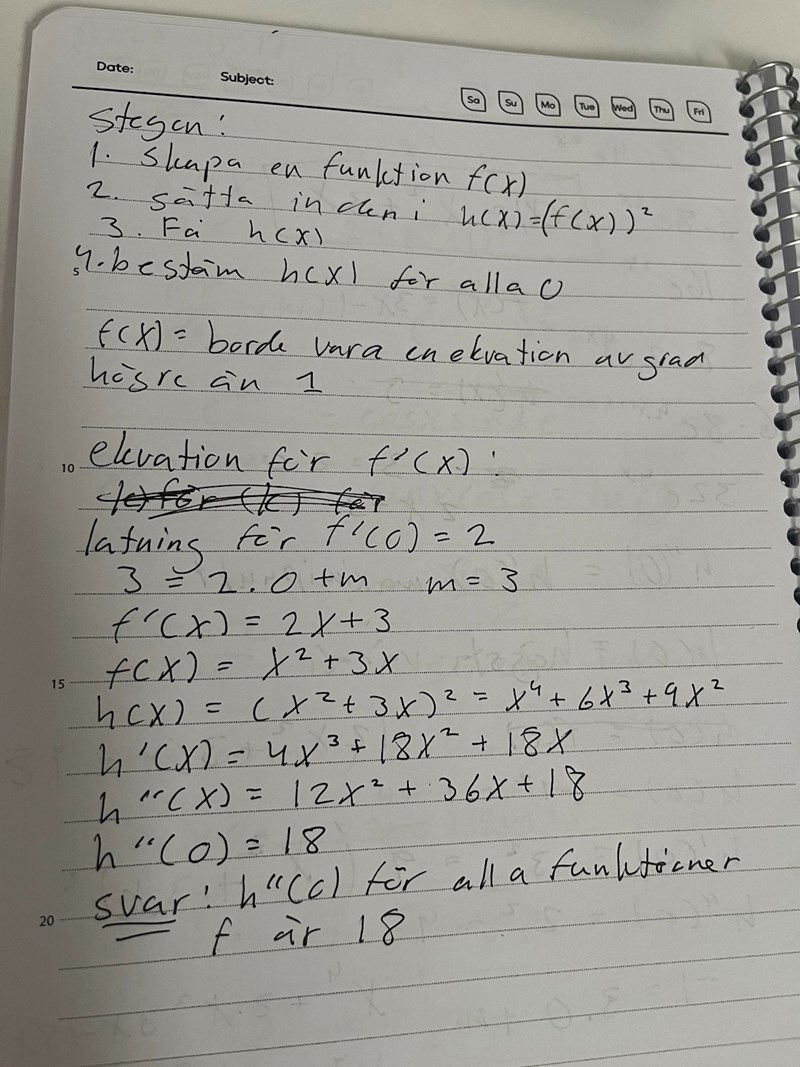 Date:
Subject:
Sa Su Mo Tue Wed Thu Fri
Stegen:
1. Skapa en funktion f(x)
2. sätta in den i h(x)=(f(x))²
3. Få h(x)
5
4. bestäm h(x) för alla 0
f(x) = borde vara en ekvation av grad
högre än 1
10 ekvation för f'(x):
lutning för f'(0) = 2
3 = 2.0 + m m = 3
f'(x) = 2x+3
15 f(x) = x² + 3x
h(x) = (x² + 3x)² = x⁴ + 6x³ + 9x²
h'(x) = 4x³ + 18x² + 18x
h''(x) = 12x² + 36x + 18
h''(0) = 18
20 svar: h''(0) för alla funktioner
f är 18